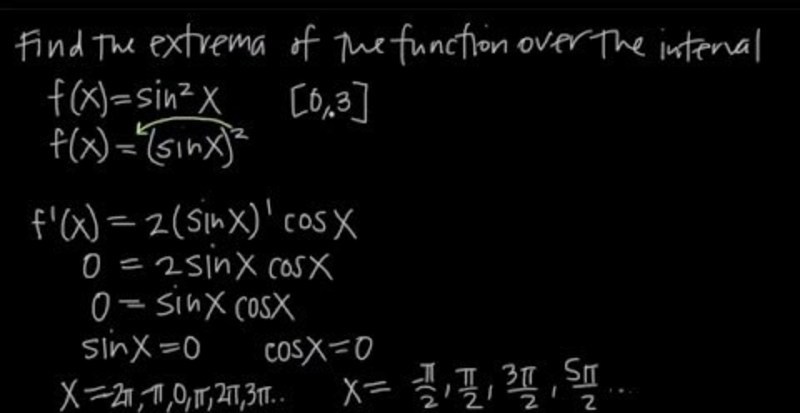 Find the extrema of the function over the interval
f(x)=sin²x [0,3]
f(x)=(sinx)²
f'(x)=2(sinx)¹cosx
0=2sinxcosx
0=sinxcosx
sinx=0 cosx=0
x=-2π,-π,0,π,2π,3π.. x=-π/2,π/2,3π/2,5π/2...